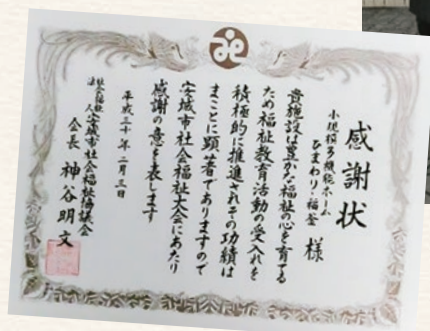 感謝状
小規模多機能ホーム
ひまわり・福釜 様
貴施設は豊かな福祉の心を育てる
ため福祉教育活動の受入れを
積極的に推進されその功績は
まことに顕著でありますので
安城市社会福祉大会にあたり
感謝の意を表します
平成三十年二月三日
社会福祉法人 安城市社会福祉協議会
会長 神谷明文